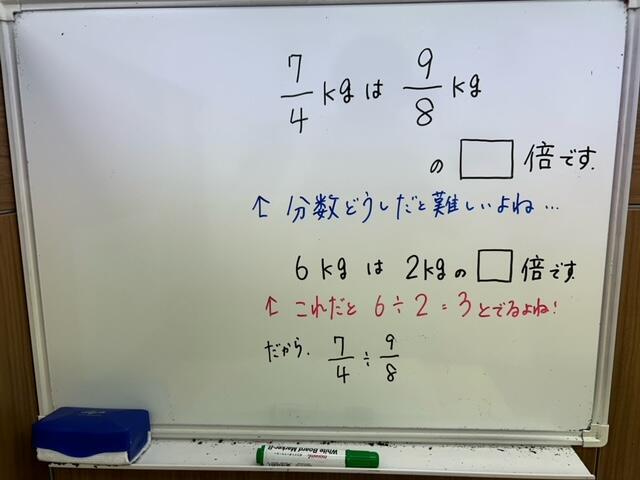 7/4 kg は 9/8 kg
の □ 倍です.
↑ 分数どうしだと難しいよね…
6kg は 2kgの □ 倍です
↑ これだと 6÷2=3とでるよね!
だから、 7/4 ÷ 9/8
White Board Marker